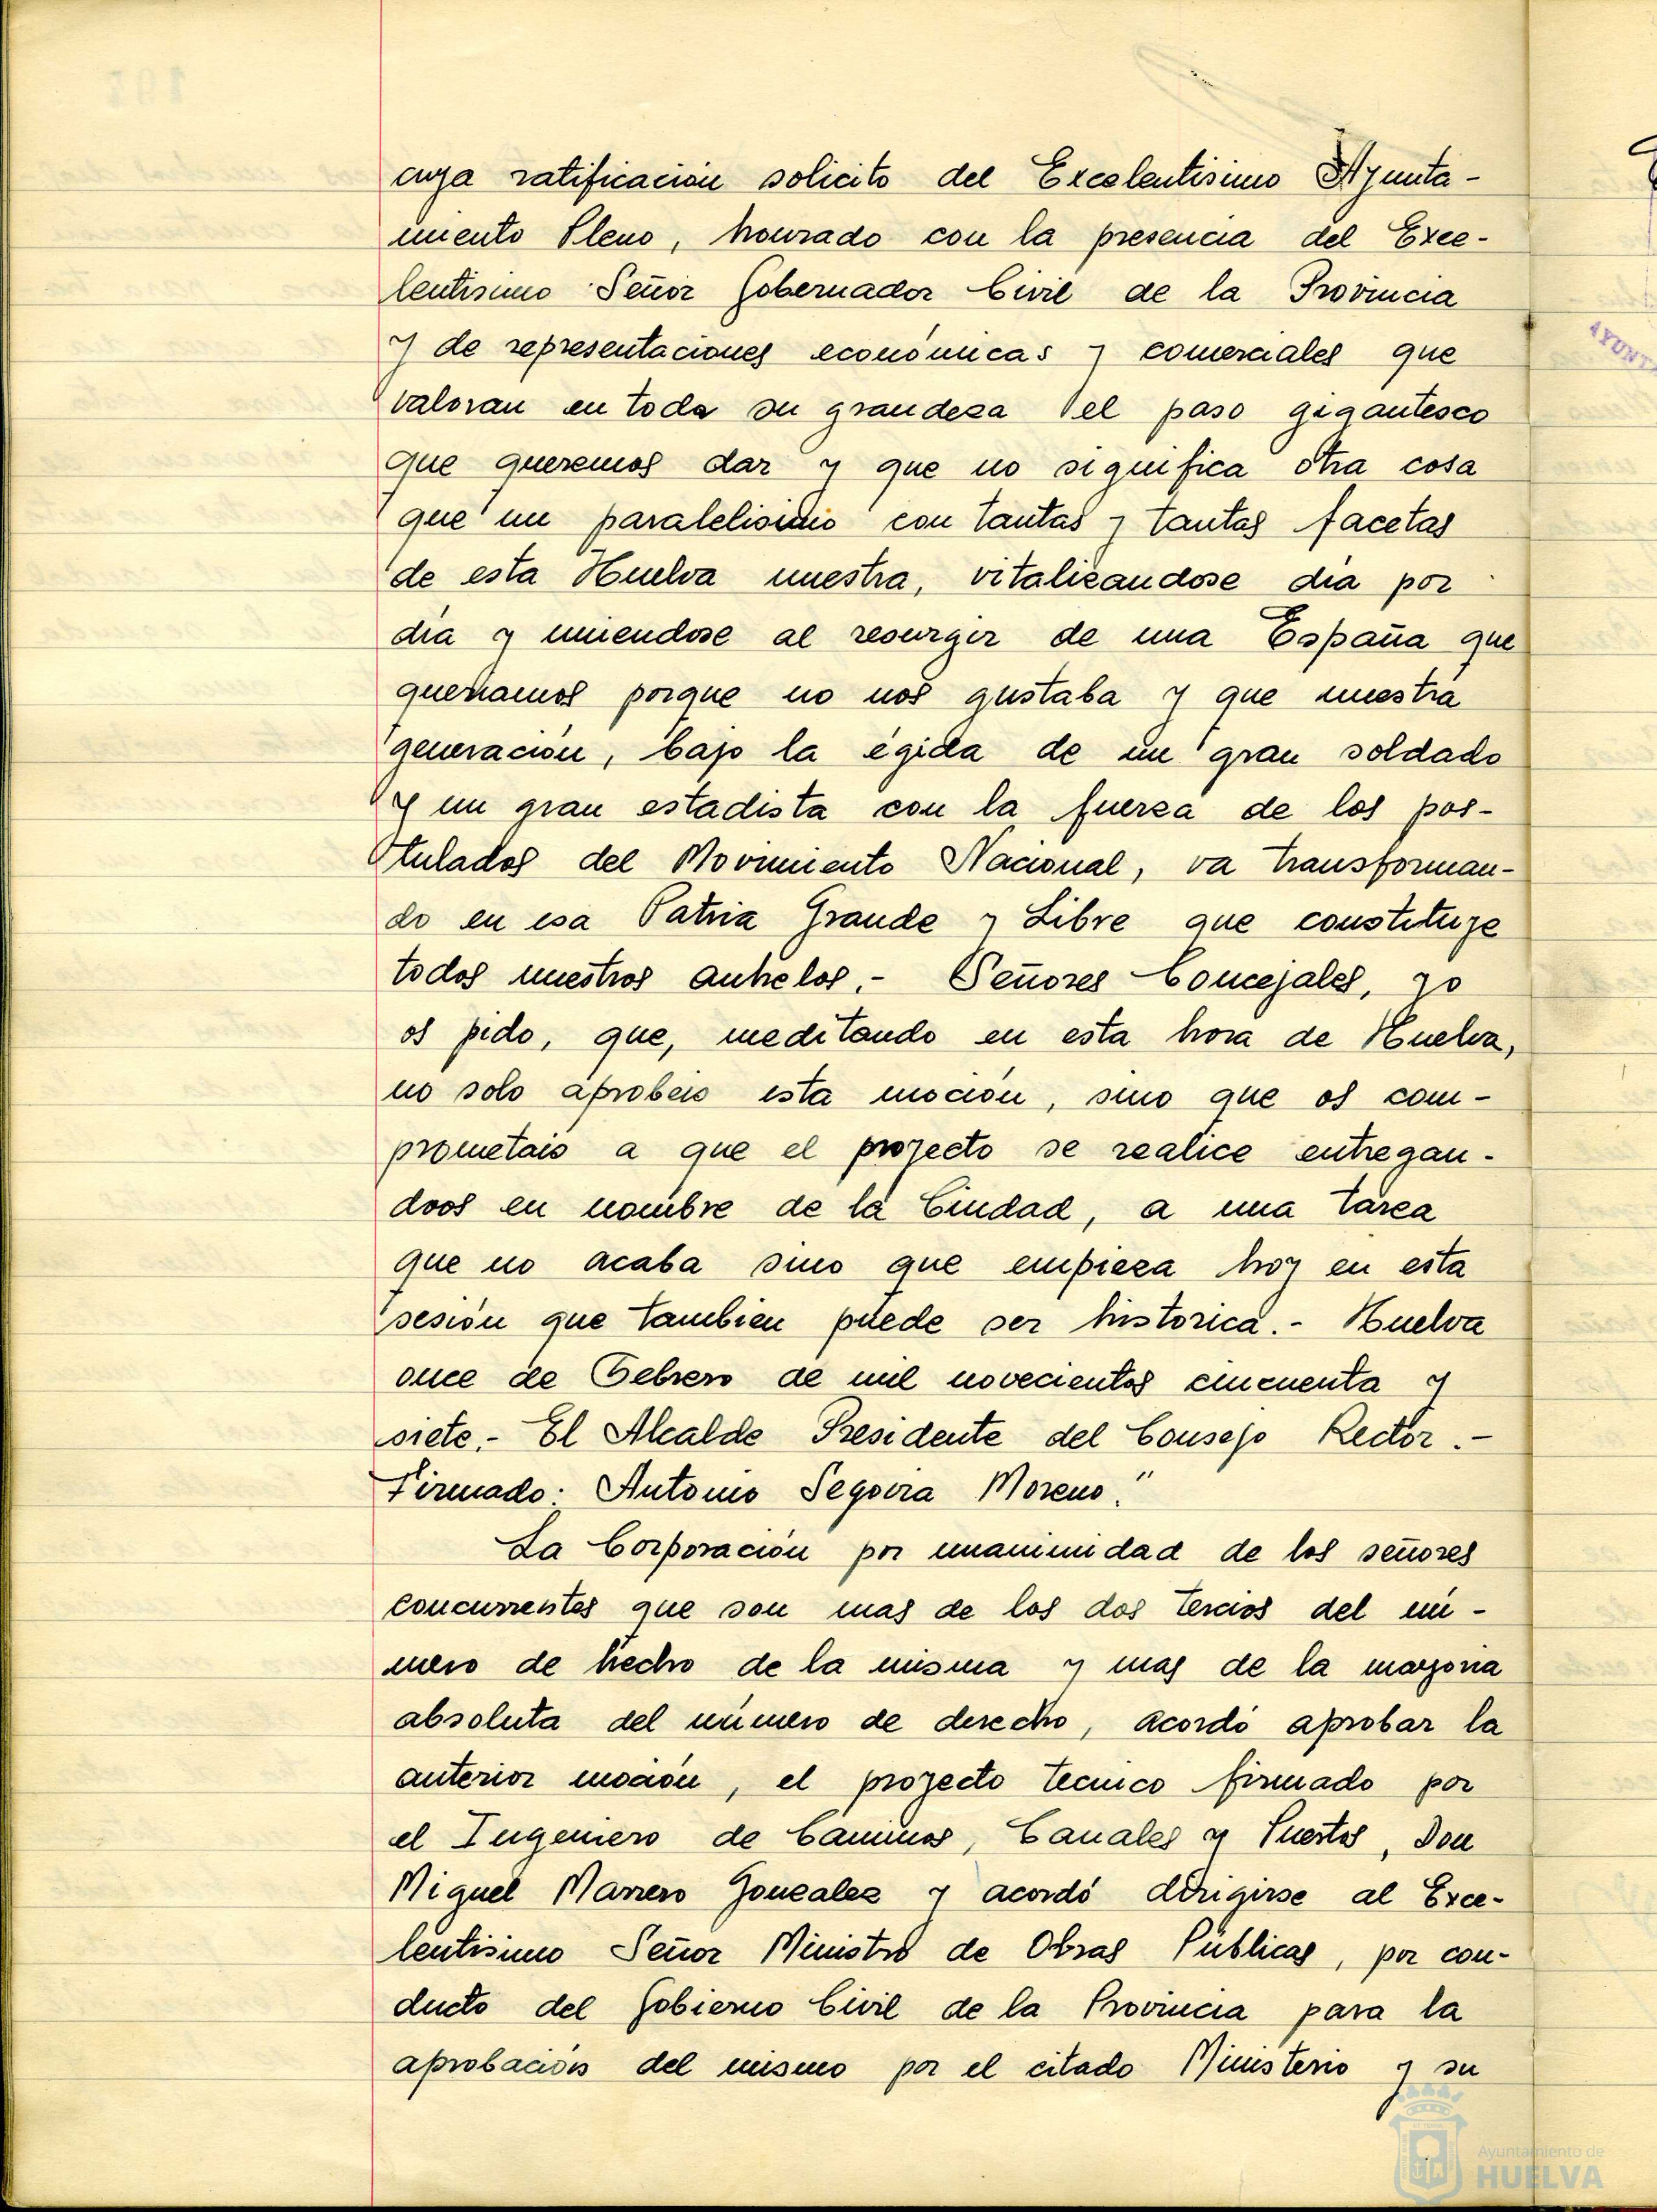 cuya ratificación solicito del Excelentisimo Ayunta-
miento Pleno, honrado con la presencia del Exce-
lentisimo Señor Gobernador Civil de la Provincia
y de representaciones económicas y comerciales que
valoran en toda su grandeza el paso gigantesco
que queremos dar y que no significa otra cosa
que un paralelismo con tantas y tantas facetas
de esta Huelva nuestra, vitalizandose dia por
dia y uniendose al resurgir de una España que
queriamos porque no nos gustaba y que nuestra
generación, bajo la égida de un gran soldado
y un gran estadista con la fuerza de los pos-
tulados del Movimiento Nacional, va transforman-
do en esa Patria Grande y Libre que constituye
todos nuestros anhelos.- Señores Concejales, yo
os pido, que, meditando en esta hora de Huelva,
no solo aprobeis esta moción, sino que os com-
prometais a que el proyecto se realice entregan-
doos en nombre de la Ciudad, a una tarea
que no acaba sino que empieza hoy en esta
sesión que tambien puede ser historica.- Huelva
once de Febrero de mil novecientos cincuenta y
siete.- El Alcalde Presidente del Consejo Rector.-
Firmado: Antonio Segovia Moreno."
La Corporación por unanimidad de los señores
concurrentes que son mas de los dos tercios del nú-
mero de hecho de la misma y mas de la mayoria
absoluta del número de derecho, acordó aprobar la
anterior moción, el proyecto tecnico firmado por
el Ingeniero de Caminos, Canales y Puertos, Don
Miguel Marrero Gonzalez y acordó dirigirse al Exce-
lentisimo Señor Ministro de Obras Públicas, por con-
ducto del Gobierno Civil de la Provincia para la
aprobación del mismo por el citado Ministerio y su
Ayuntamiento de
HUELVA